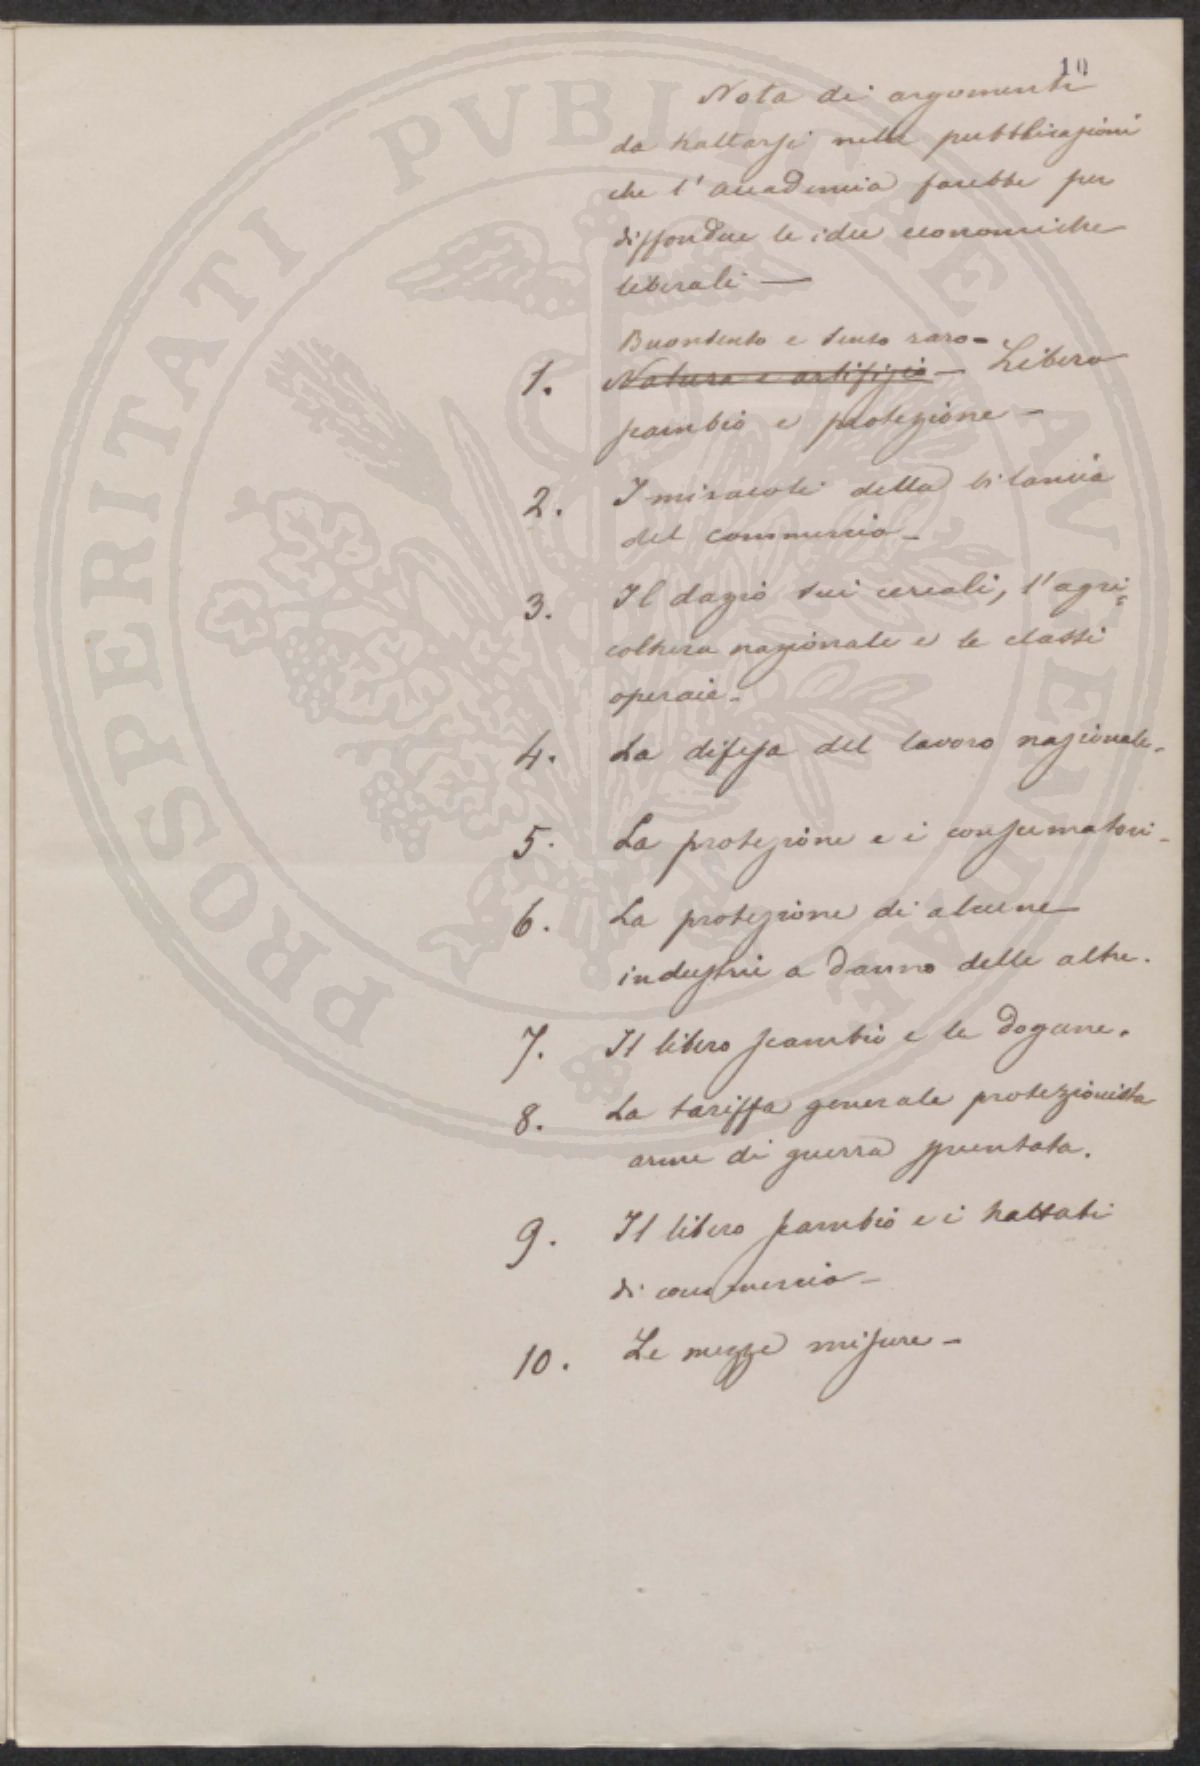 10
Nota di argomenti
da trattarsi nelle pubblicazioni
che l'accademia farebbe per
diffondere le idee economiche
liberali —
Buonsenso e senso raro -
1. Natura e artifizio — Libero
scambio e protezione —
2. I miracoli della bilancia
del commercio -
3. Il dazio sui cereali, l'agri=
coltura nazionale e le classi
operaie -
4. La difesa del lavoro nazionale.
5. La protezione e i consumatori -
6. La protezione di alcune
industrie a danno delle altre.
7. Il libero scambio e le dogane.
8. La tariffa generale protezionista
arme di guerra spuntata.
9. Il libero scambio e i trattati
di commercio -
10. Le mezze misure -
PROSPERITATI PVBLICAE AVGENDAE